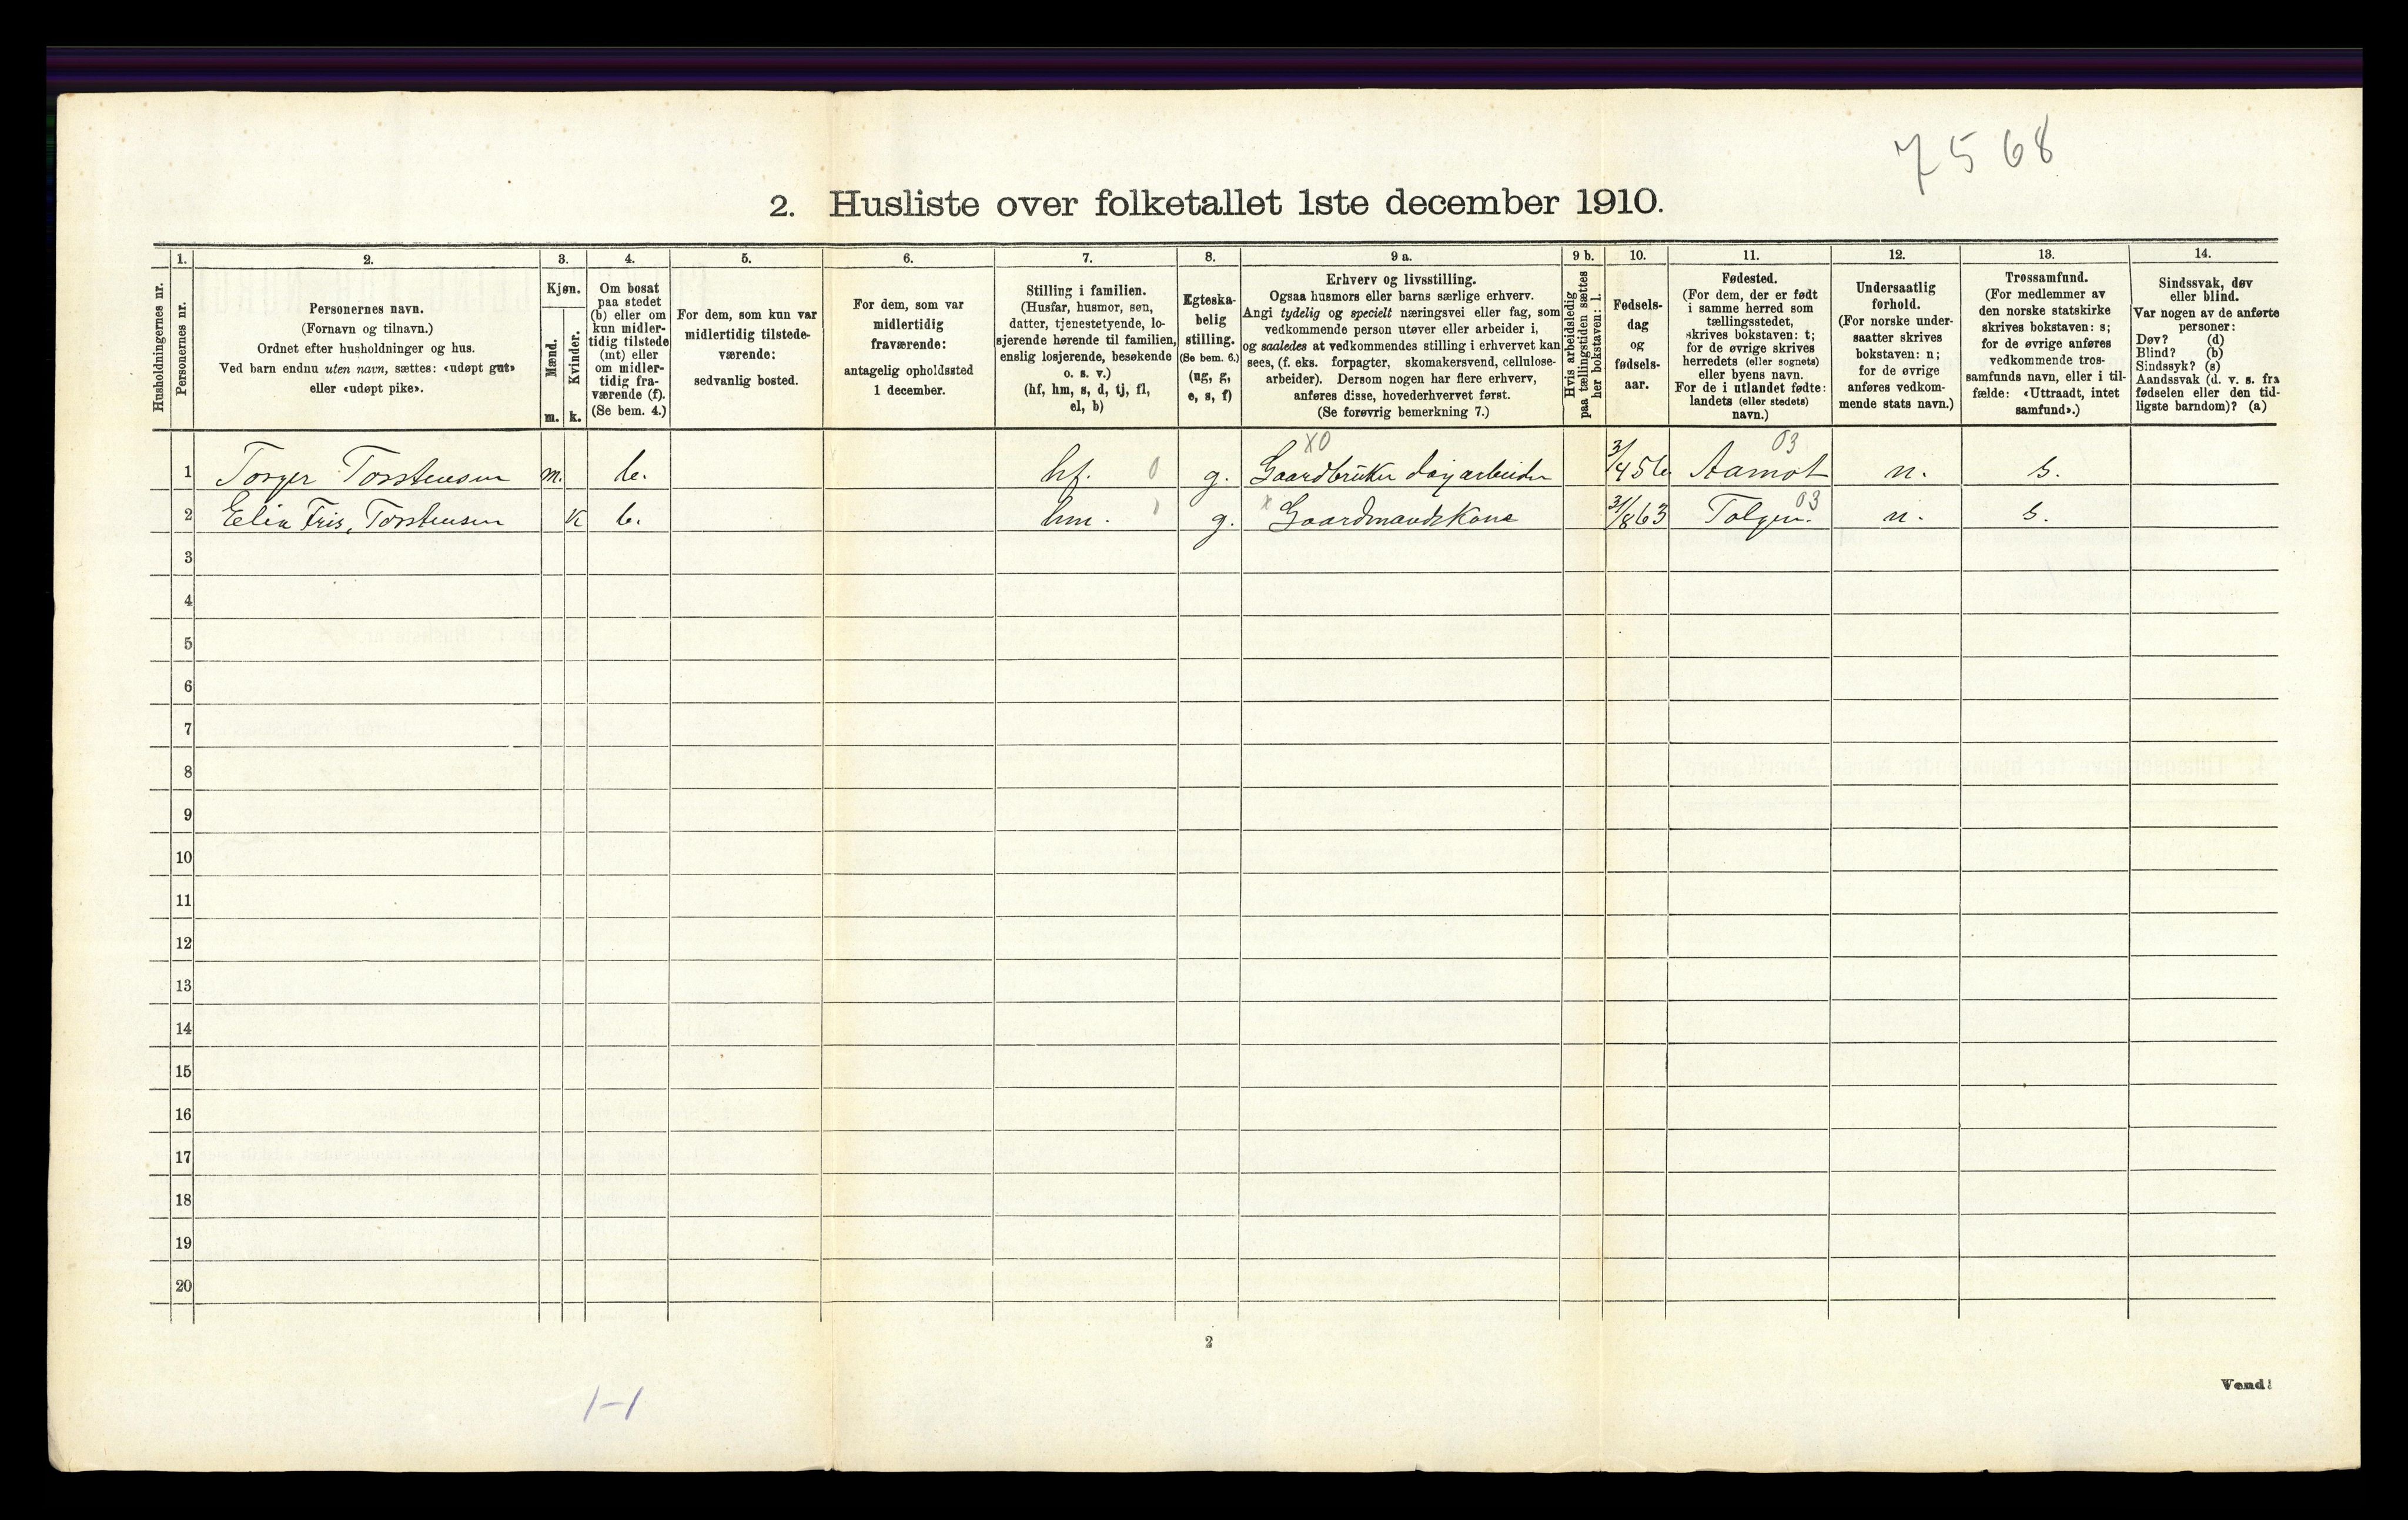 7568
2. Husliste over folketallet 1ste december 1910.
1. 2. 3. 4. 5. 6. 7. 8. 9 a. 9 b. 10. 11. 12. 13. 14.
Husholdningernes nr.
Personernes nr.
Personernes navn.
(Fornavn og tilnavn.)
Ordnet efter husholdninger og hus.
Ved barn endnu uten navn, sættes: «udøpt gut»
eller «udøpt pike».
Kjøn.
Mænd.
Kvinder.
m. k.
Om bosat
paa stedet
(b) eller om
kun midler-
tidig tilstede
(mt) eller
om midler-
tidig fra-
værende (f).
(Se bem. 4.)
For dem, som kun var
midlertidig tilstede-
værende:
sedvanlig bosted.
For dem, som var
midlertidig
fraværende:
antagelig opholdssted
1 december.
Stilling i familien.
(Husfar, husmor, søn,
datter, tjenestetyende, lo-
sjerende hørende til familien,
enslig losjerende, besøkende
o. s. v.)
(hf, hm, s, d, tj, fl,
el, b)
Egteska-
belig
stilling.
(Se bem. 6.)
(ug, g,
e, s, f)
Erhverv og livsstilling.
Ogsaa husmors eller barns særlige erhverv.
Angi tydelig og specielt næringsvei eller fag, som
vedkommende person utøver eller arbeider i,
og saaledes at vedkommendes stilling i erhvervet kan
sees, (f. eks. forpagter, skomakersvend, cellulose-
arbeider). Dersom nogen har flere erhverv,
anføres disse, hovederhvervet først.
(Se forøvrig bemerkning 7.)
Hvis arbeidsledig
paa tællingstiden sættes
her bokstaven: l.
Fødsels-
dag
og
fødsels-
aar.
Fødested.
(For dem, der er født
i samme herred som
tællingsstedet,
skrives bokstaven: t;
for de øvrige skrives
herredets (eller sognets)
eller byens navn.
For de i utlandet fødte:
landets (eller stedets)
navn.)
Undersaatlig
forhold.
(For norske under-
saatter skrives
bokstaven: n;
for de øvrige
anføres vedkom-
mende stats navn.)
Trossamfund.
(For medlemmer av
den norske statskirke
skrives bokstaven: s;
for de øvrige anføres
vedkommende tros-
samfunds navn, eller i til-
fælde: «Uttraadt, intet
samfund».)
Sindssvak, døv
eller blind.
Var nogen av de anførte
personer:
Døv? (d)
Blind? (b)
Sindssyk? (s)
Aandssvak (d. v. s. fra
fødselen eller den tid-
ligste barndom)? (a)
X0 03
1 Torger Torstensen m. b. hf. 0 g. Gaardbruker dagarbeider 3/4 56 Aamot n. s.
2 Elia Fris, Torstensen k b. hm. 1 g. x Gaardmandskone 31/8 63 Tolgen. 03 n. s.
3
4
5
6
7
8
9
10
11
12
13
14
15
16
17
18
19
20
2
Vend!
1-1